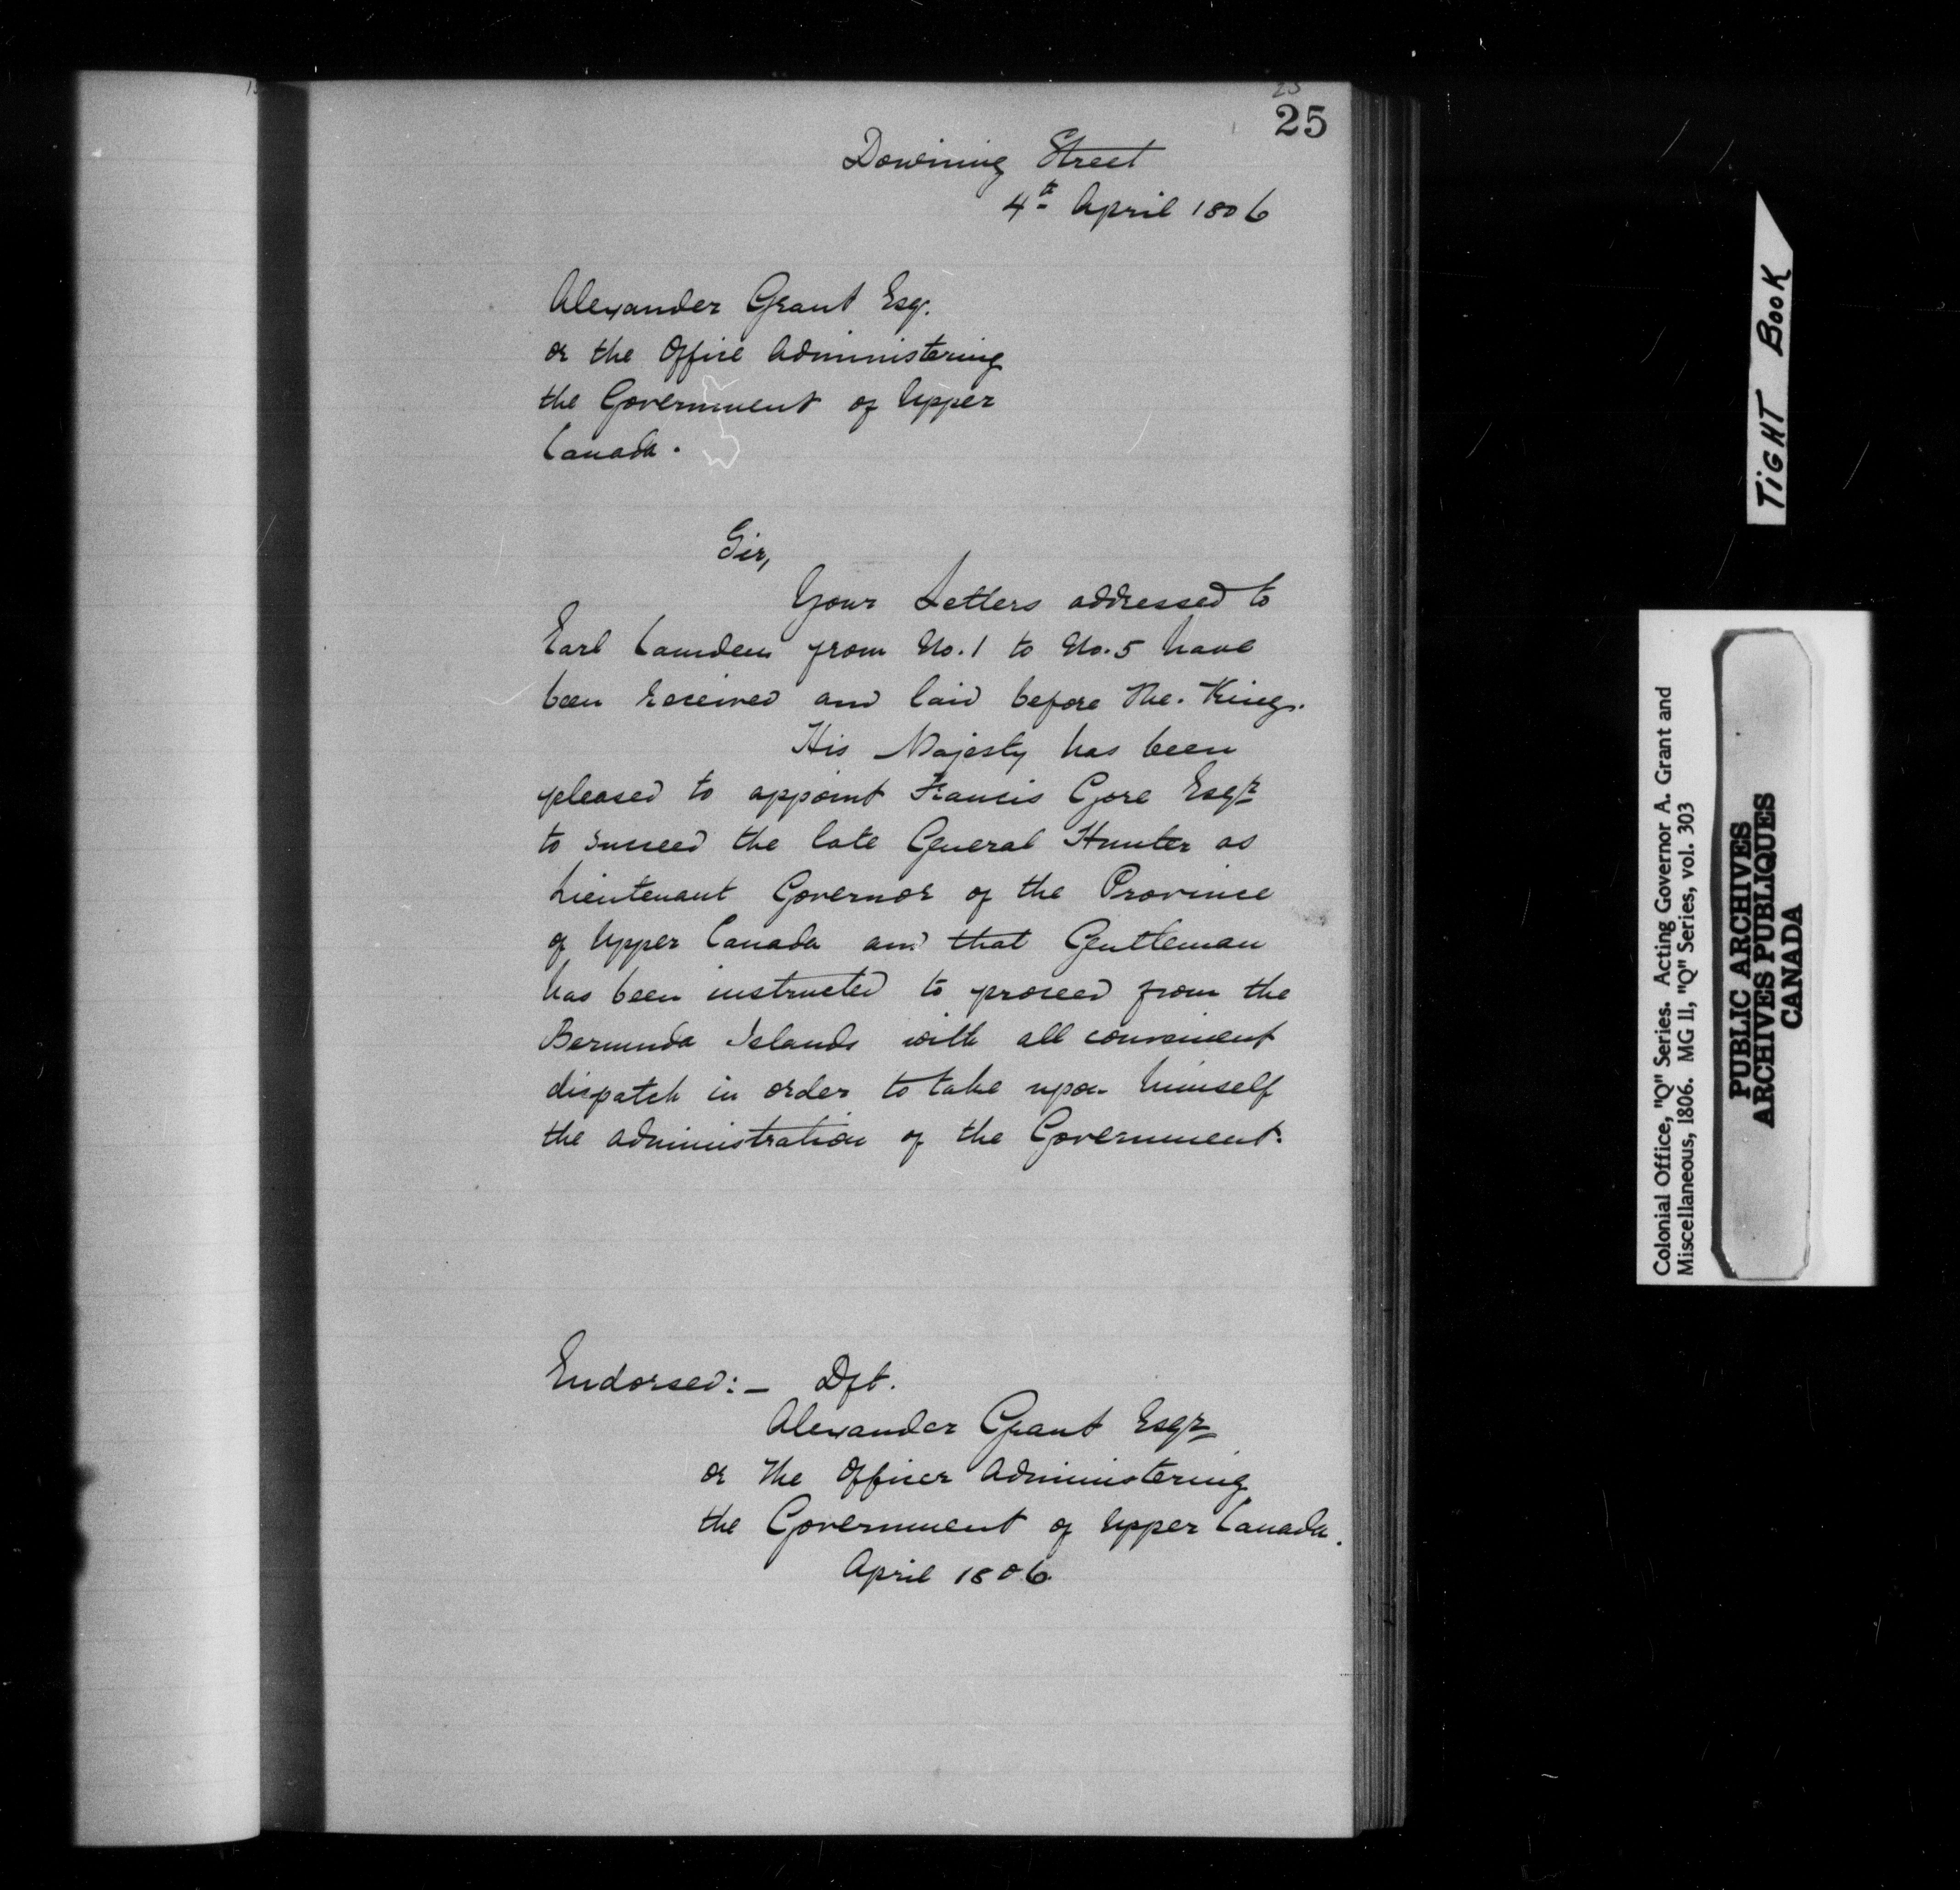 25
25
Downing Street
4th April 1806
Alexander Grant Esq.
or the Office Administering
the Government of Upper
Canada.
Sir,
Your Letters addressed to
Earl Camden from No. 1 to No. 5 have
been received and laid before The King.
His Majesty has been
pleased to appoint Francis Gore Esqr
to succeed the late General Hunter as
Lieutenant Governor of the Province
of Upper Canada and that Gentleman
has been instructed to proceed from the
Bermuda Islands with all convenient
dispatch in order to take upon himself
the administration of the Government.
Endorsed:- Dft.
Alexander Grant Esqr
or The Officer Administering
the Government of Upper Canada.
April 1806
TIGHT BOOK
Colonial Office, "Q" Series. Acting Governor A. Grant and
Miscellaneous, 1806. MG 11, "Q" Series, vol. 303
PUBLIC ARCHIVES
ARCHIVES PUBLIQUES
CANADA